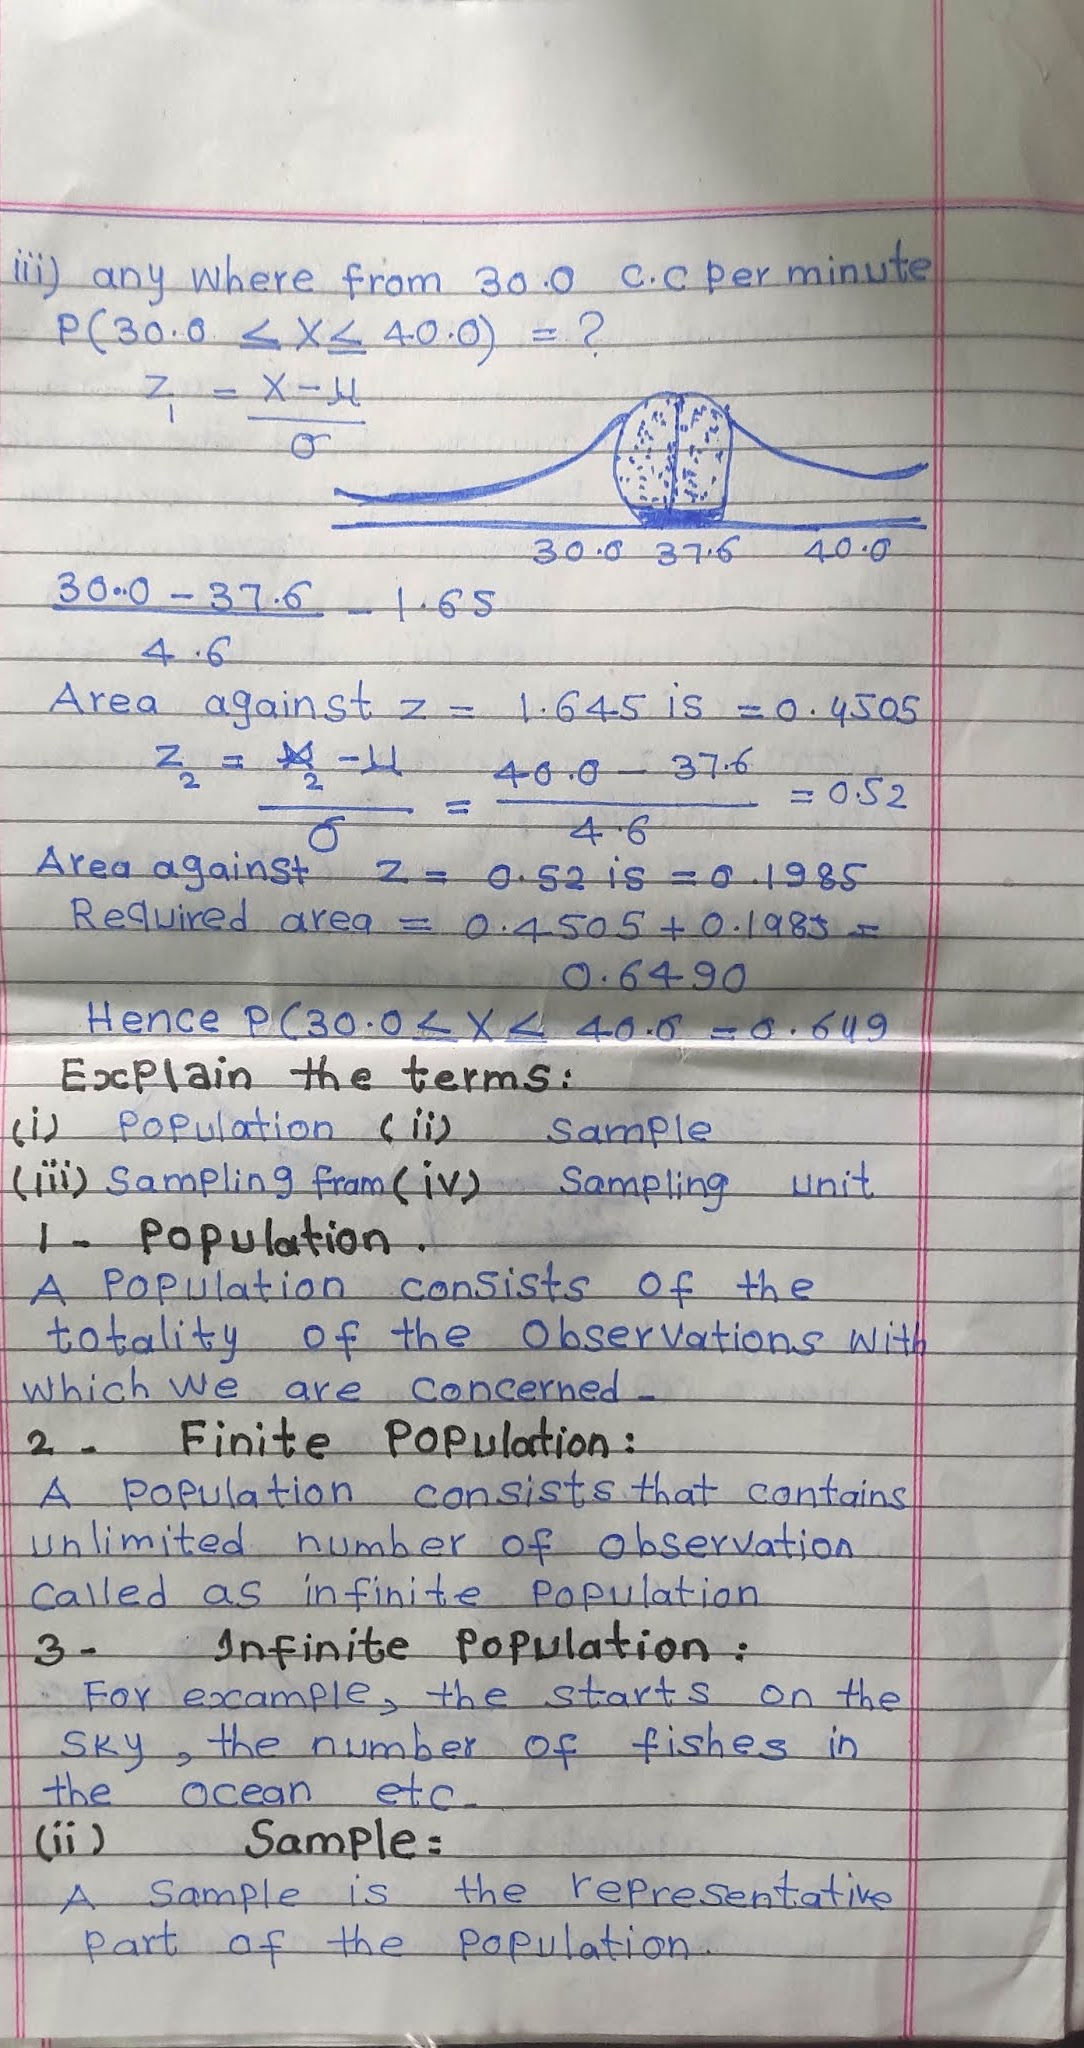 iii) any where from 30.0 c.c per minute
P(30.0 ≤ X ≤ 40.0) = ?
Z₁ = X-μ
σ
30.0 37.6 40.0
30.0 - 37.6 - 1.65
4.6
Area against z = 1.645 is = 0.4505
Z₂ = X₂ - μ = 40.0 - 37.6 = 0.52
σ 4.6
Area against z = 0.52 is = 0.1985
Required area = 0.4505 + 0.1985 =
0.6490
Hence P(30.0 ≤ X ≤ 40.0 = 0.649
Explain the terms:
(i) Population (ii) Sample
(iii) Sampling fram (iv) Sampling unit
1- Population.
A Population consists of the
totality of the Observations with
which we are concerned-
2- Finite Population:
A Population consists that contains
unlimited number of observation
called as infinite Population
3- Infinite Population:
For example, the starts on the
sky, the number of fishes in
the ocean etc-
(ii) Sample=
A Sample is the representative
part of the Population.